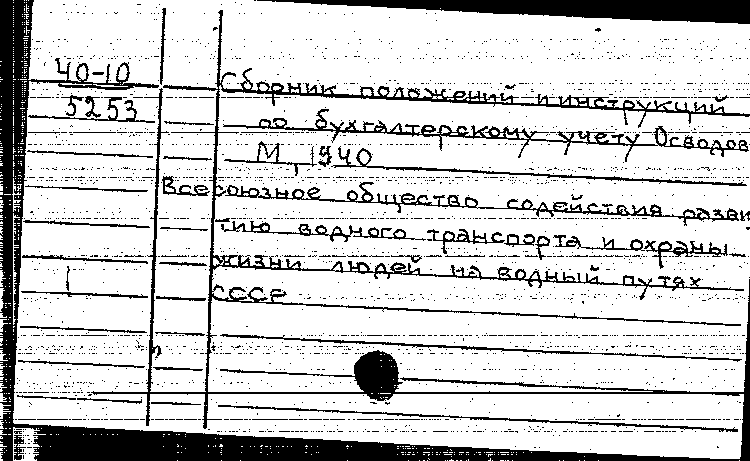 40-10
5253
Сборник положений и инструкций
по бухгалтерскому учету Осводов
М, 1940
Всесоюзное общество содействия разви
тию водного транспорта и охраны
жизни людей на водный путях
СССР